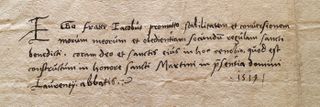 Ego frater Iacobus promitto stabilitatem et conversionem
morum meorum et obedientiam secundum regulam sancti
benedicti. coram deo et sanctis eius in hoc cenobio, quod est
constructum in honore sancti Martini in p̄sentia domini
Laurentij abbatis .:~ ·1519·